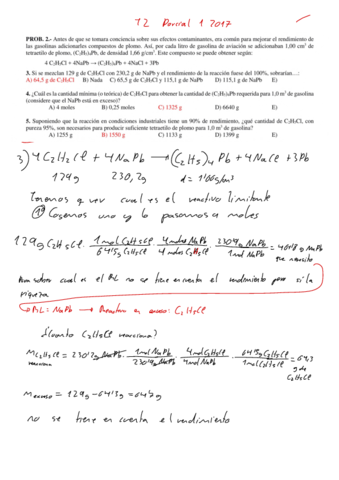 T2 Parcial 1 2017
PROB. 2.- Antes de que se tomara conciencia sobre sus efectos contaminantes, era común para mejorar el rendimiento de
las gasolinas adicionarles compuestos de plomo. Así, por cada litro de gasolina de aviación se adicionaban 1,00 cm³ de
tetraetilo de plomo, (C₂H₅)₄Pb, de densidad 1,66 g/cm³. Este compuesto se puede obtener según:
4 C₂H₅Cl + 4NaPb → (C₂H₅)₄Pb + 4NaCl + 3Pb
3. Si se mezclan 129 g de C₂H₅Cl con 230,2 g de NaPb y el rendimiento de la reacción fuese del 100%, sobrarían…:
A) 64,5 g de C₂H₅Cl B) Nada C) 65,5 g de C₂H₅Cl D) 115 g de NaPb E)
4. ¿Cuál es la cantidad mínima (o teórica) de C₂H₅Cl para obtener la cantidad de (C₂H₅)₄Pb requerida para 1,0 m³ de gasolina
(considere que el NaPb está en exceso)?
A) 4 moles B) 0,25 moles C) 1325 g D) 6640 g E)
5. Suponiendo que la reacción en condiciones industriales tiene un 90% de rendimiento, ¿qué cantidad de C₂H₅Cl, con
pureza 95%, son necesarios para producir suficiente tetraetilo de plomo para 1,0 m³ de gasolina?
A) 1255 g B) 1550 g C) 1133 g D) 1399 g E)
3) 4C₂H₅Cl + 4NaPb → (C₂H₅)₄Pb + 4NaCl + 3Pb
129g 230,2g d = 1'66g/cm³
Tenemos q ver cual es el reactivo limitante
1º Cogemos uno y lo pasamos a moles
129g C₂H₅Cl · 1mol C₂H₅Cl / 64'5g C₂H₅Cl · 4moles NaPb / 4moles C₂H₅Cl · 230'9g NaPb / 1mol NaPb = 461'8g NaPb
que necesito
Para saber cual es el RL no se tiene en cuenta el rendimiento pero si la
riqueza
RL: NaPb → Reactivo en exceso: C₂H₅Cl
¿Cuanto C₂H₅Cl reacciona?
m C₂H₅Cl = 230'2g NaPb · 1mol NaPb / 230'9g NaPb · 4mol C₂H₅Cl / 4moles NaPb · 64'5g C₂H₅Cl / 1mol C₂H₅Cl = 64,3
reacciona g de
C₂H₅Cl
m exceso = 129g - 64'3g = 64'7g
no se tiene en cuenta el rendimiento